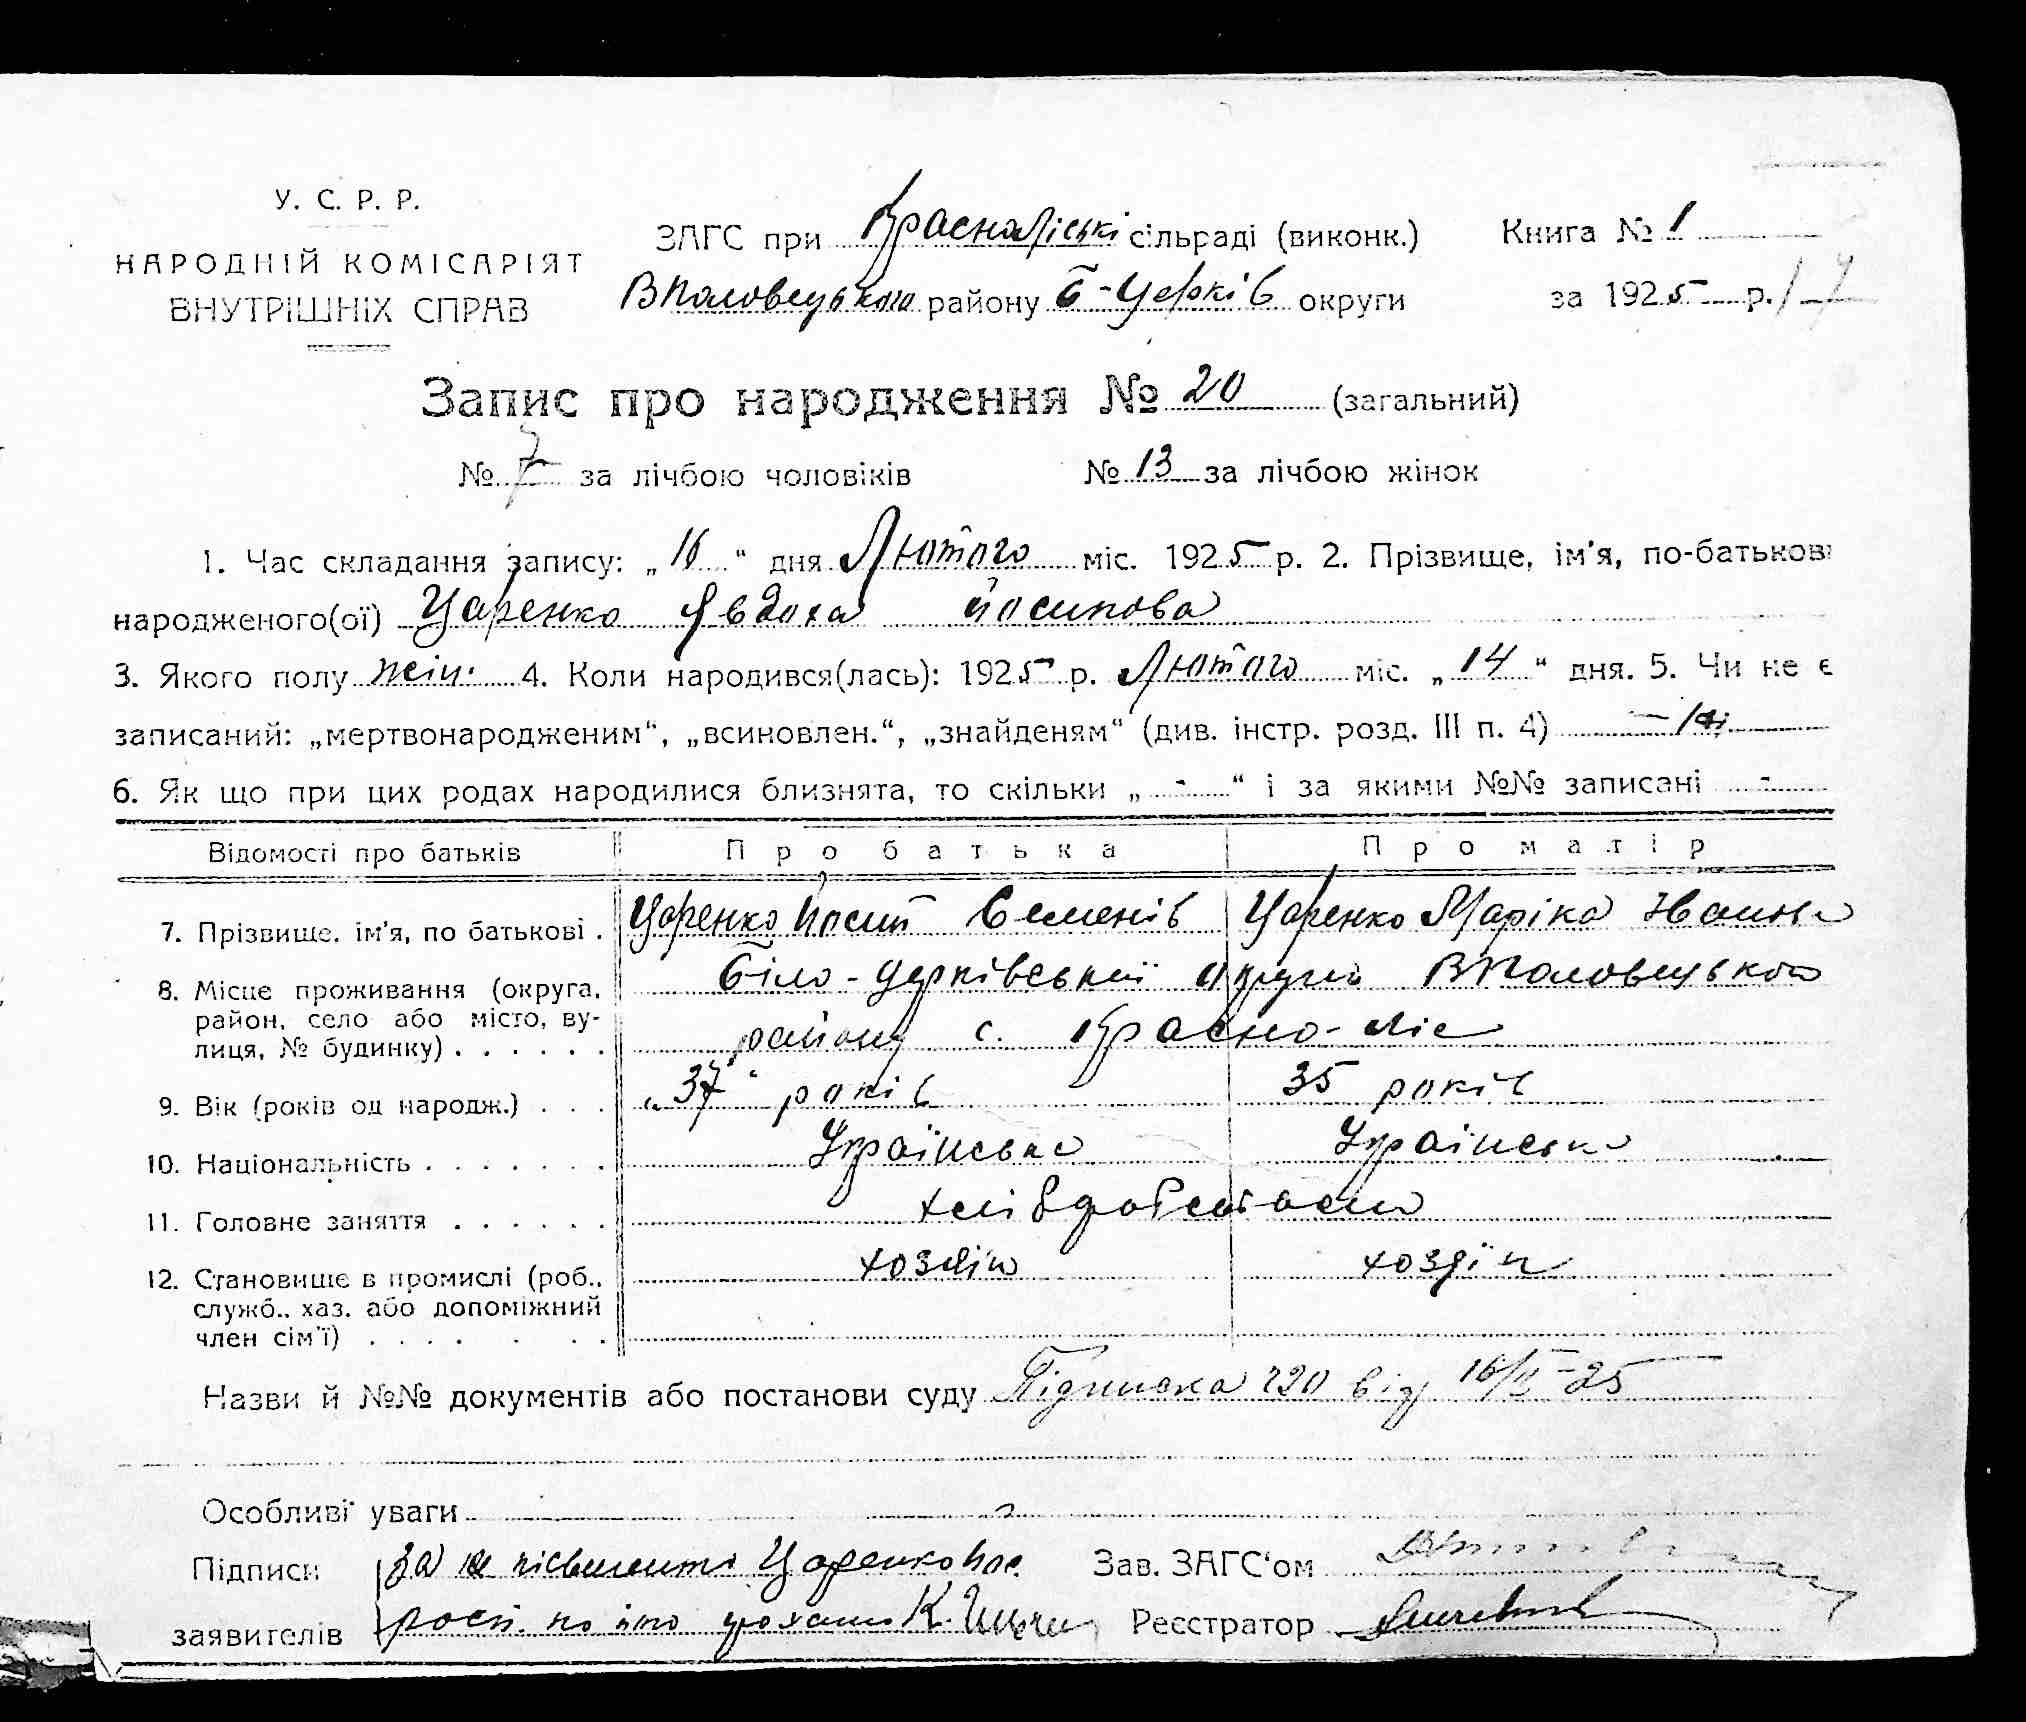 У. С. Р. Р.
НАРОДНІЙ КОМІСАРІЯТ
ВНУТРІШНІХ СПРАВ
ЗАГС при Красноліські сільраді (виконк.)
Книга № 1
ВПоловецького району Б-Церків округи
за 1925 р.
Запис про народження № 20 (загальний)
№ 7 за лічбою чоловіків № 13 за лічбою жінок
1. Час складання запису: „16“ дня Лютого міс. 1925 р. 2. Прізвище, ім'я, по-батькові
народженого(ої) Царенко Явдоха Йосипова
3. Якого полу жін. 4. Коли народився(лась): 1925 р. Лютого міс. „14“ дня. 5. Чи не є
записаний: „мертвонародженим“, „всиновлен.“, „знайденям“ (див. інстр. розд. III п. 4)
6. Як що при цих родах народилися близнята, то скільки „ - “ і за якими №№ записані -
Відомості про батьків Про батька Про матір
7. Прізвище, ім'я, по батькові . Царенко Йосип Семенів Царенко Маріка Іванова
8. Місце проживання (округа, Біло-Церківської округи ВПоловецького
район, село або місто, ву-
лиця, № будинку) . . . . . . району с. Красно-Ліс
9. Вік (років од народж.) . . . „37“ років 35 років
10. Національність . . . . . . . Українська Українська
11. Головне заняття . . . . . . хлібробство
12. Становище в промислі (роб., хозяїн хозяїн
служб., хаз. або допоміжний
член сім'ї) . . . . . . .
Назви й №№ документів або постанови суду Підписка 220 від 16/II-25
Особливі уваги
Підписи За не письменті Царенко Йос.
Зав. ЗАГС'ом
заявителів росп. по його К.
Реєстратор